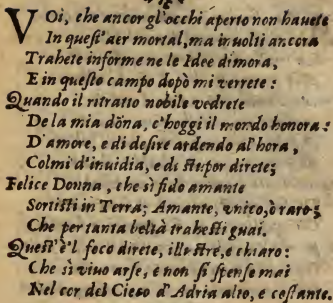 VOi, che ancor gl'occhi aperto non hauete
In quest'aer mortal, ma inuolti ancora
Trahete informe ne le Idee dimora,
E in questo campo dopò mi verrete:
Quando il ritratto nobile vedrete
De la mia dōna, c'hoggi il mondo honora:
D'amore, e di desire ardendo al'hora,
Colmi d'inuidia, e di stupor direte;
Felice Donna, che sì fido amante
Sortisti in Terra; Amante, vnico, ò raro;
Che per tanta beltà trahesti guai.
Quest'è'l foco direte, illustre, e chiaro:
Che sì viuo arse, e non si spense mai
Nel cor del Cieco d'Adria alto, e costante.